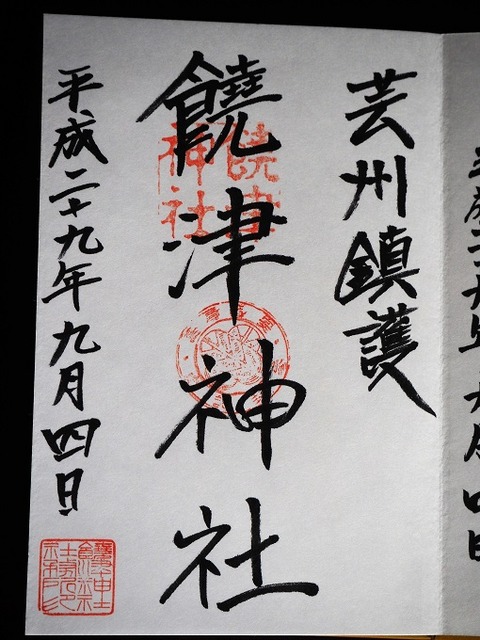 芸州鎮護
饒津神社
饒津
神社
平成二十九年九月四日